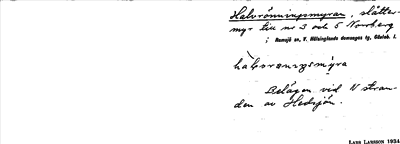 Halvrönningsmyran, slåtter-
myr till nr 3 och 5 Norrberg
i Ramsjö sn, V. Hälsinglands domsagas tg, Gävleb. l.
Belägen vid N stran-
den av Hedsjön.
LARS LARSSON 1934